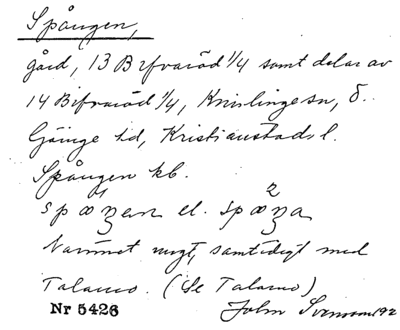 Spången,
gård, 13 Bifvaröd 1/4 samt delar av
14 Bifvaröd 1/4, Knislinge sn, Ö.
Göinge hd, Kristianstads l.
Spången kb.
el.
Namnet ungt, samtidigt med
Talarno. (Se Talarno)
Nr 5426
John Svensson 192